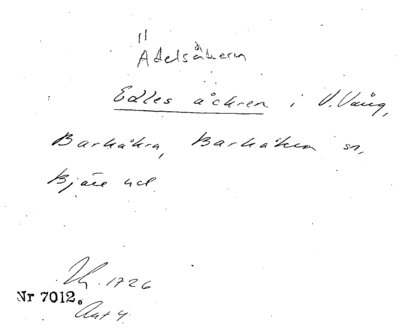 Adelsåkern
Edles åckren i V. Vång,
Barkåkra, Barkåkra sn,
Bjäre hd.
1726
Nr 7012.
Akt 4